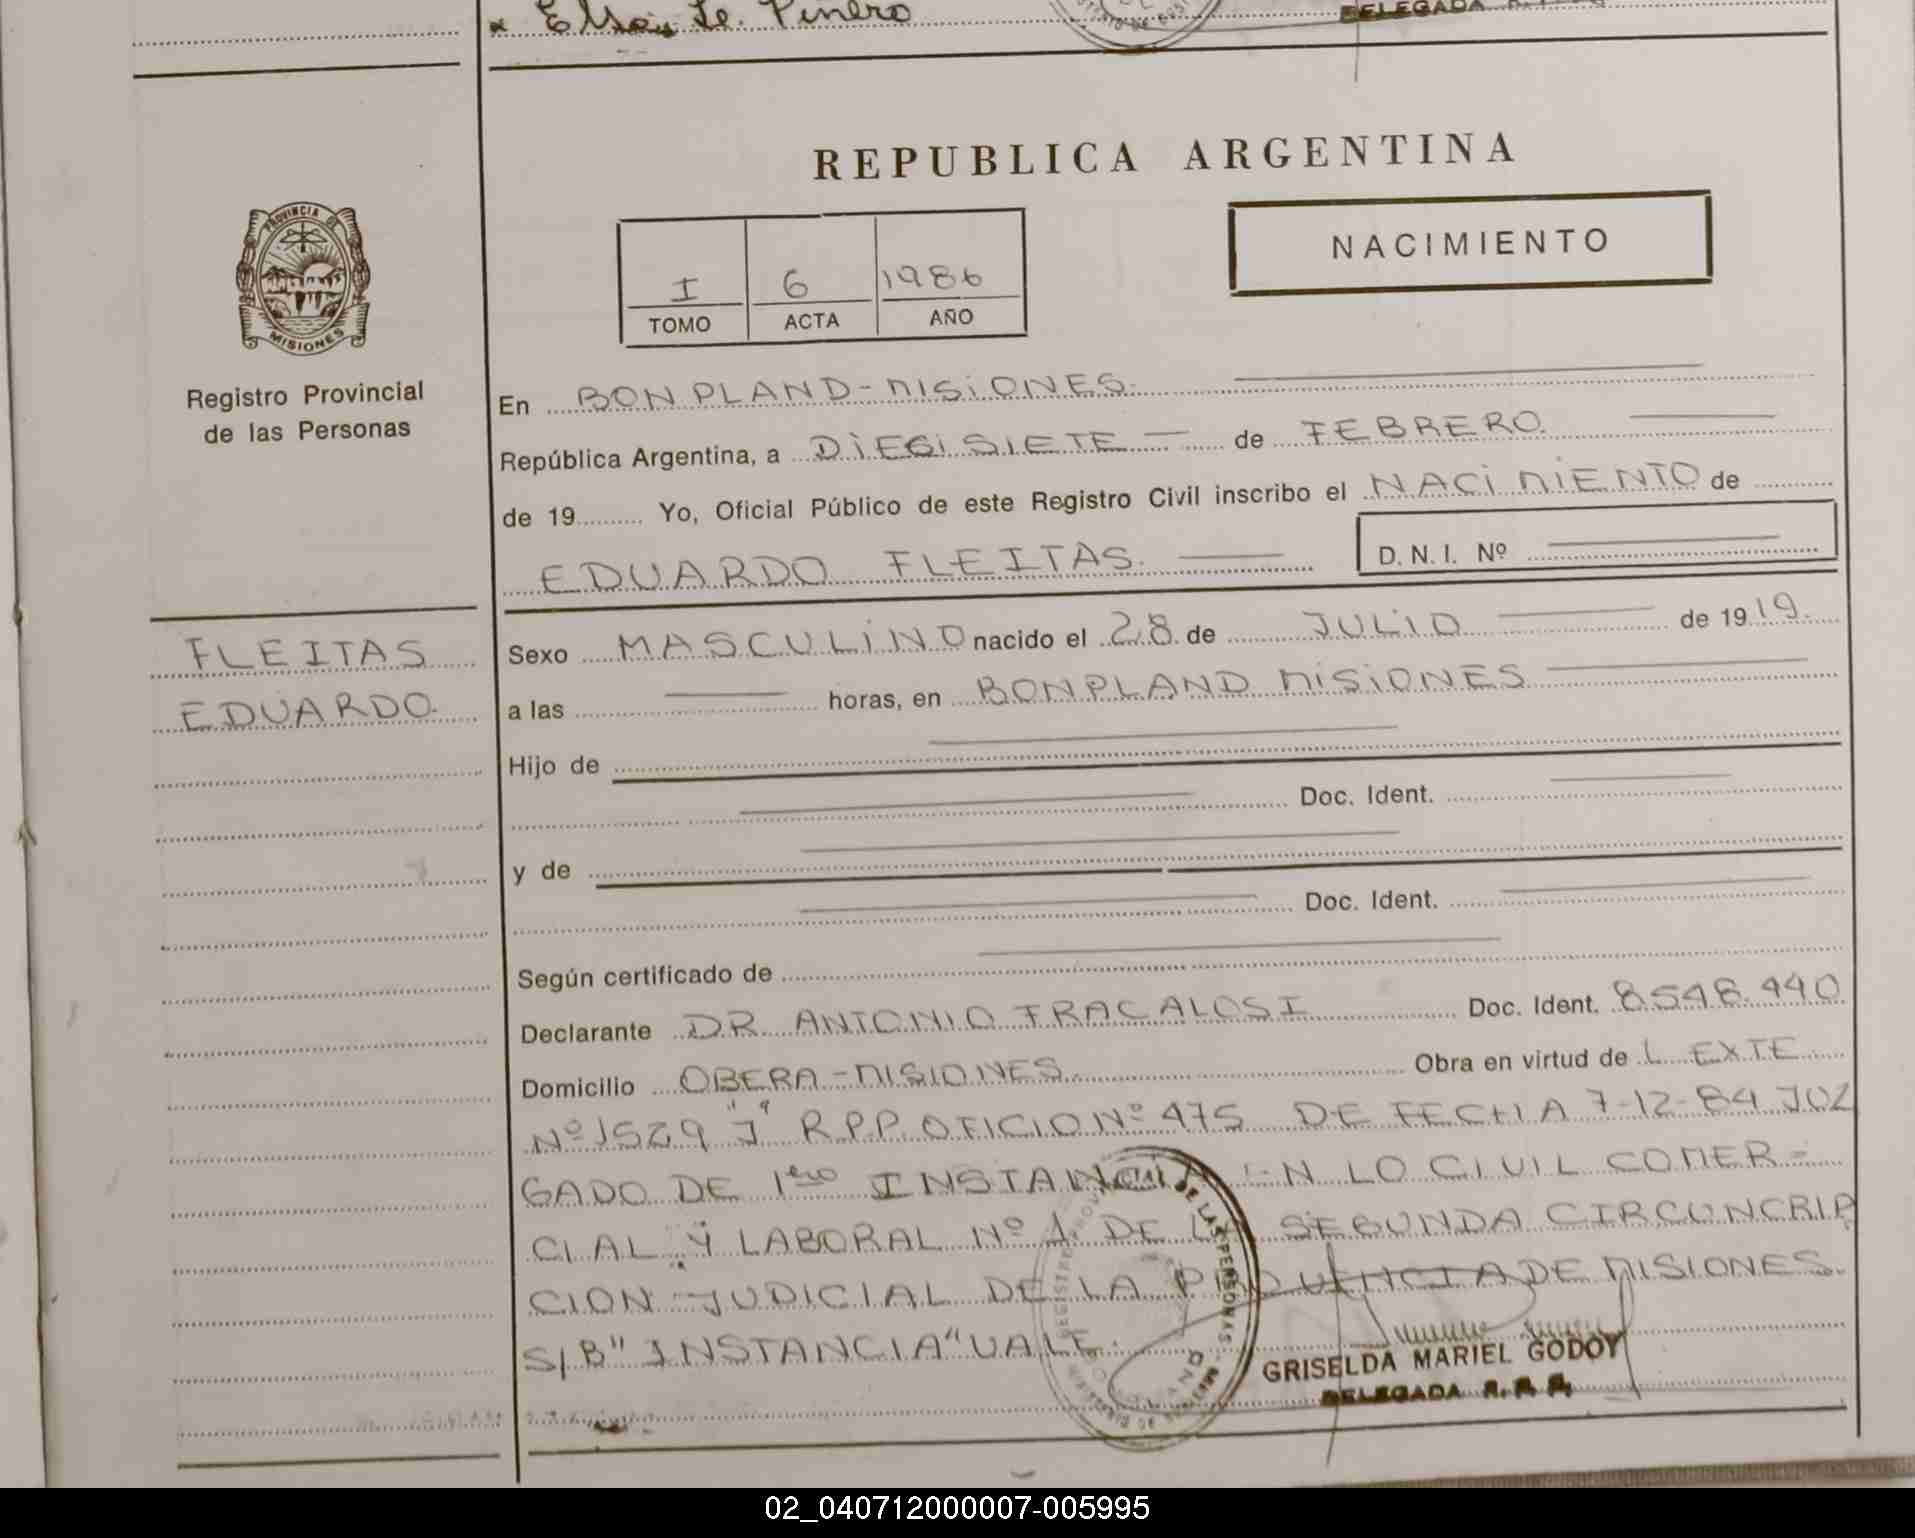 * Elsa Le. Piñero
DELEGADA R.P.P.
REPUBLICA ARGENTINA
PROVINCIA DE
MISIONES
Registro Provincial
de las Personas
NACIMIENTO
I 6 1986
TOMO ACTA AÑO
En BONPLAND-MISIONES.
República Argentina, a DIECISIETE — de FEBRERO.
de 19 Yo, Oficial Público de este Registro Civil inscribo el NACIMIENTO de
EDUARDO FLEITAS. D.N.I. Nº
FLEITAS
EDUARDO.
Sexo MASCULINO nacido el 28 de JULIO de 1919.
a las horas, en BONPLAND MISIONES
Hijo de
Doc. Ident.
y de
Doc. Ident.
Según certificado de
Declarante DR. ANTONIO FRACALOSI Doc. Ident. 8548.440
Domicilio OBERA-MISIONES. Obra en virtud de L. EXTE
Nº 1529 "J" R.P.P. OFICIO Nº 475 DE FECHA 7-12-84 JUZ
GADO DE 1ero INSTANCIA EN LO CIVIL COMER-
CIAL Y LABORAL Nº 1 DE LA SEGUNDA CIRCUNCRIP
CION JUDICIAL DE LA PROVINCIA DE MISIONES.
S/B "INSTANCIA" VALE.
GRISELDA MARIEL GODOY
DELEGADA R.P.P.
02_040712000007-005995